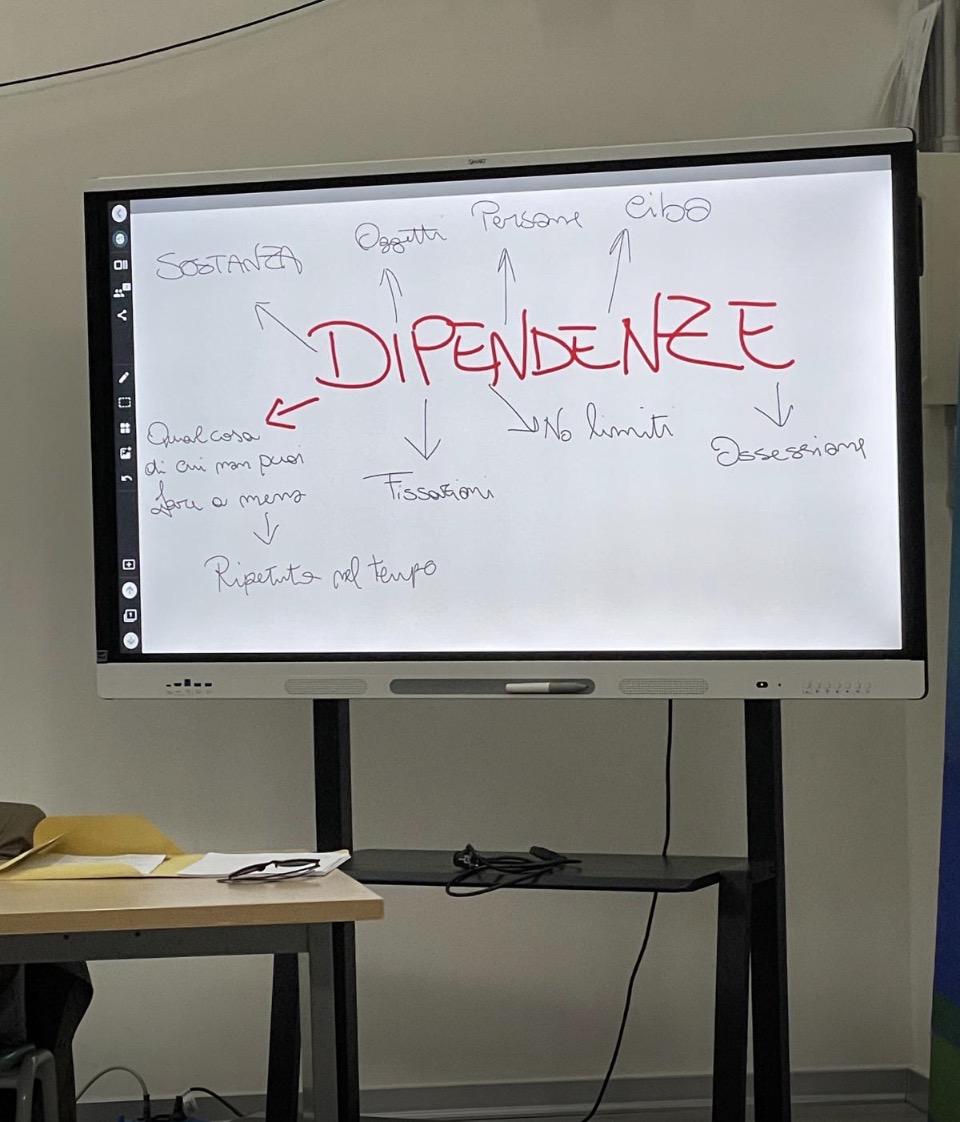 SMART
SOSTANZA
Oggetti
Persone
Cibo
DIPENDENZE
Qualcosa
di cui non puoi
fare a meno
Ripetuto nel tempo
Fissazioni
No limiti
Ossessione